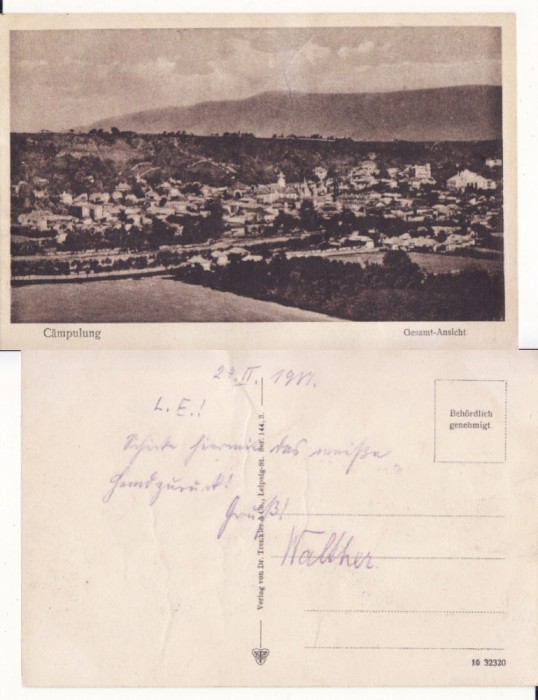 Câmpulung
Gesamt-Ansicht
II. 1917.
L. E.!
Schicke hiermit das weiße
Hemd zurück!
Gruß!
Walther.
Behördlich
genehmigt.
Verlag von Dr. Trenkler & Co., Leipzig-St. Ser. 144, 3.
10 32320